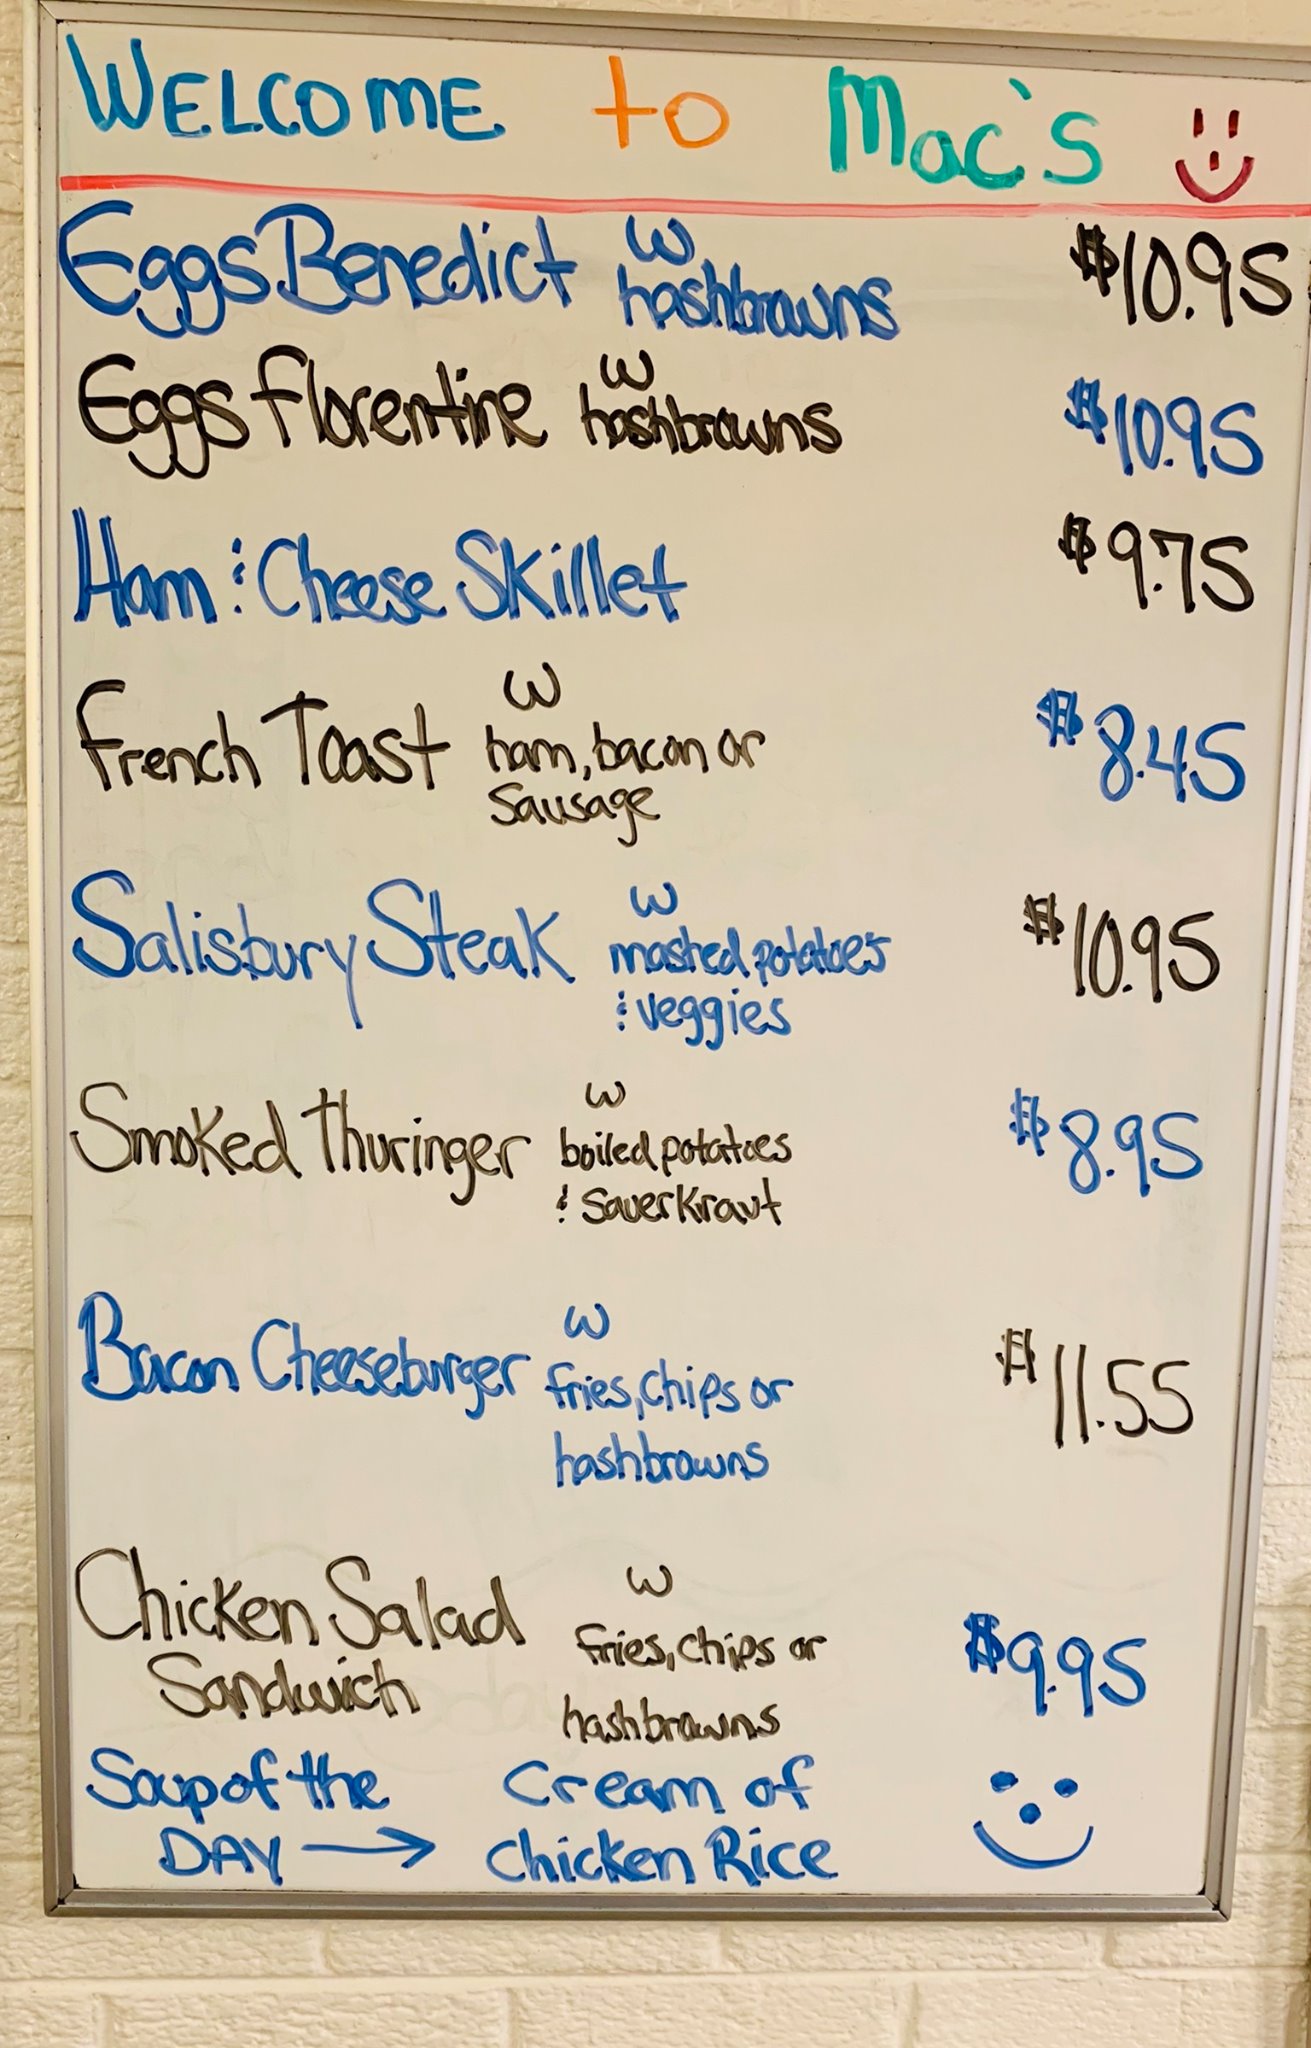 WELCOME to Mac's
Eggs Benedict w hashbrowns $10.95
Eggs Florentine w hashbrowns $10.95
Ham & Cheese Skillet $9.75
French Toast w ham, bacon or $8.45
Sausage
Salisbury Steak w mashed potatoes $10.95
& veggies
Smoked Thuringer w boiled potatoes $8.95
& Sauerkraut
Bacon Cheeseburger w fries, chips or $11.55
hashbrowns
Chicken Salad w fries, chips or $9.95
Sandwich hashbrowns
Soup of the Cream of
DAY → Chicken Rice